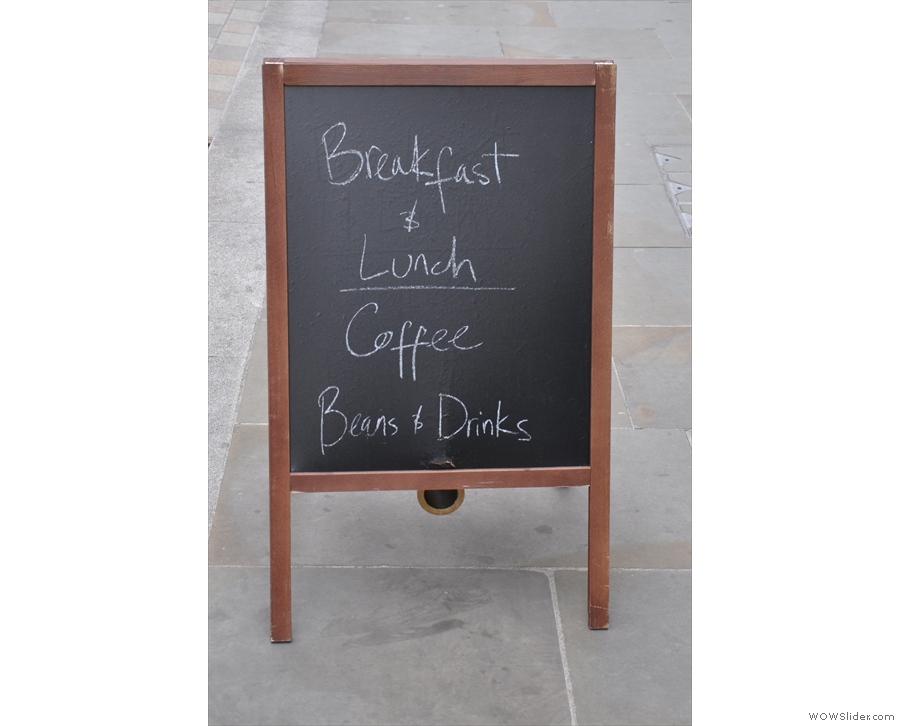 Breakfast
&
Lunch
Coffee
Beans & Drinks
WOWSlider.com